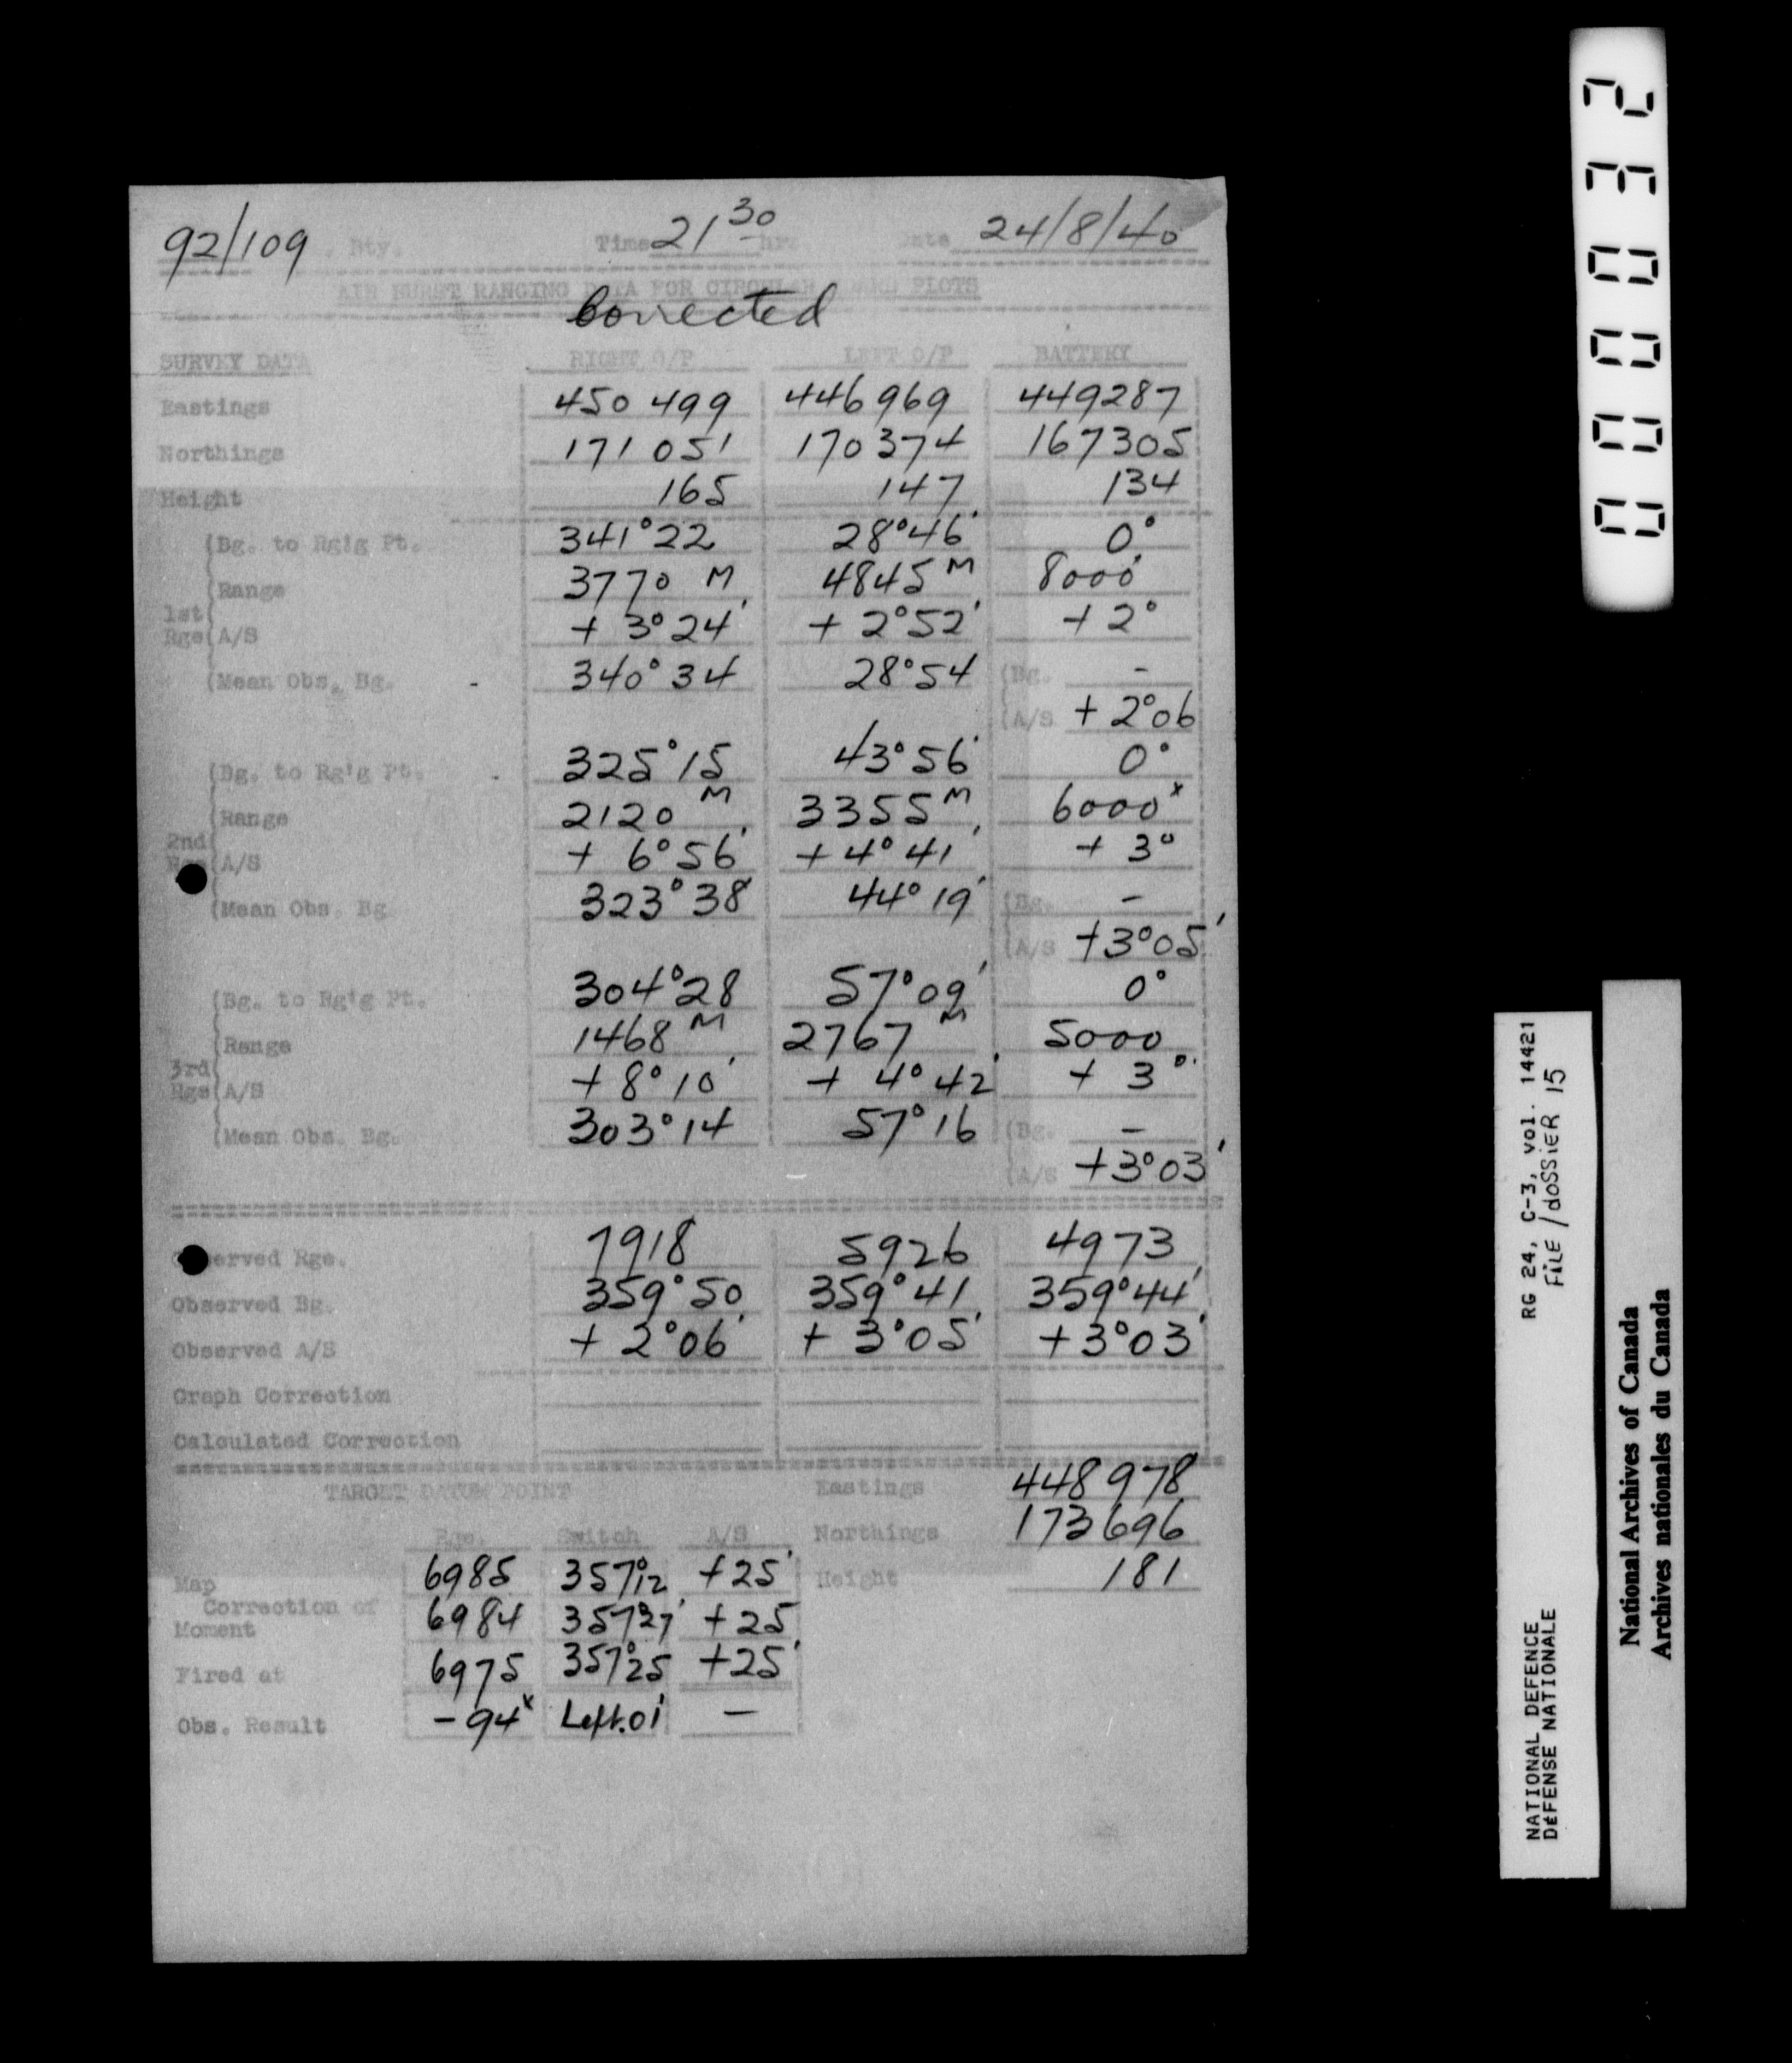 92/109 . Bty. Time 21 30 hrs. Date 24/8/40
AIR BURST RANGING DATA FOR PLOTS
Corrected
SURVEY DATA RIGHT O/P LEFT O/P BATTERY
Eastings 450 499 446969 449287
Northings 171 051 170374 167305
Height 165 147 134
(Bg. to Rg'g Pt. 341°22 28°46' 0°
(Range 3770 M 4845 M 8000'
1st
Rgs (A/S + 3°24' + 2°52' + 2°
(Mean Obs. Bg. - 340°34 28°54 (Bg. -
(A/S + 2°06
(Bg. to Rg'g Pt. - 325°15 43°56' 0°
(Range 2120 M 3355 M 6000 x
2nd
(A/S + 6°56' + 4°41' + 3°
(Mean Obs. Bg 323°38' 44°19' (Bg. -
(A/S +3°05'
(Bg. to Rg'g Pt. 304°28 57°09' 0°
(Range 1468 M 2767 M 5000
3rd
Rgs (A/S + 8°10' + 4°42' + 3°
(Mean Obs. Bg. 303°14 57°16 (Bg. -
(A/S +3°03'
Rge. 7918 5926 4973
Observed Bg. 359°50 359°41 359°44'
Observed A/S + 2°06' + 3°05' +3°03'
Graph Correction
Calculated Correction
TARGET DATUM POINT Eastings 448978
Rge. Switch A/S Northings 173696
Map 6985 357°12 +25' Height 181
Correction of
Moment 6984 357°27' +25
Fired at 6975 357°25 +25'
Obs. Result -94 x Left.01' -
00032
RG 24, C-3, vol. 14421
FILE / dOSSIER 15
NATIONAL DEFENCE
DÉFENSE NATIONALE
National Archives of Canada
Archives nationales du Canada